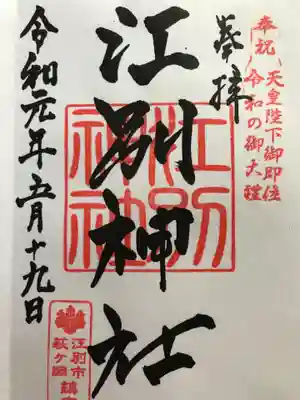 奉祝
天皇陛下御即位
令和の御大禮
奉拝
江別神社
江別神社
令和元年五月十九日
江別市
萩ヶ岡
鎮